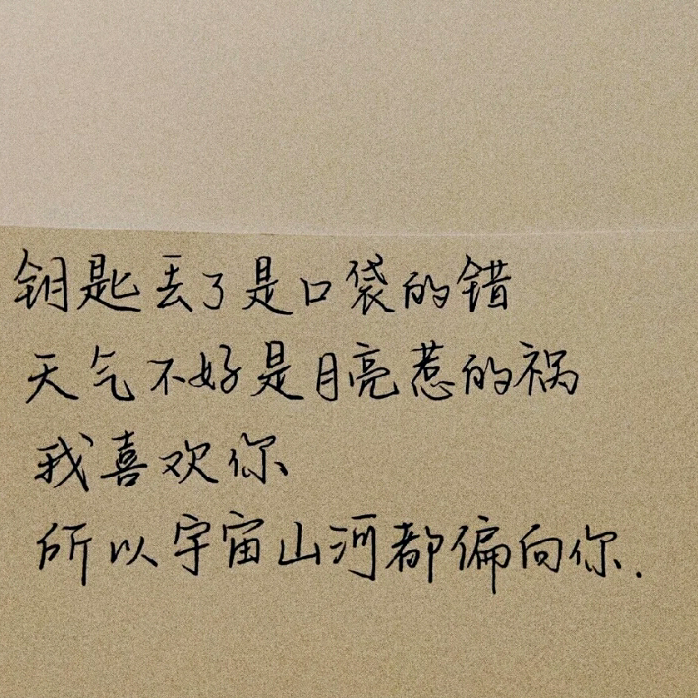 钥匙丢了是口袋的错
天气不好是月亮惹的祸
我喜欢你
所以宇宙山河都偏向你.